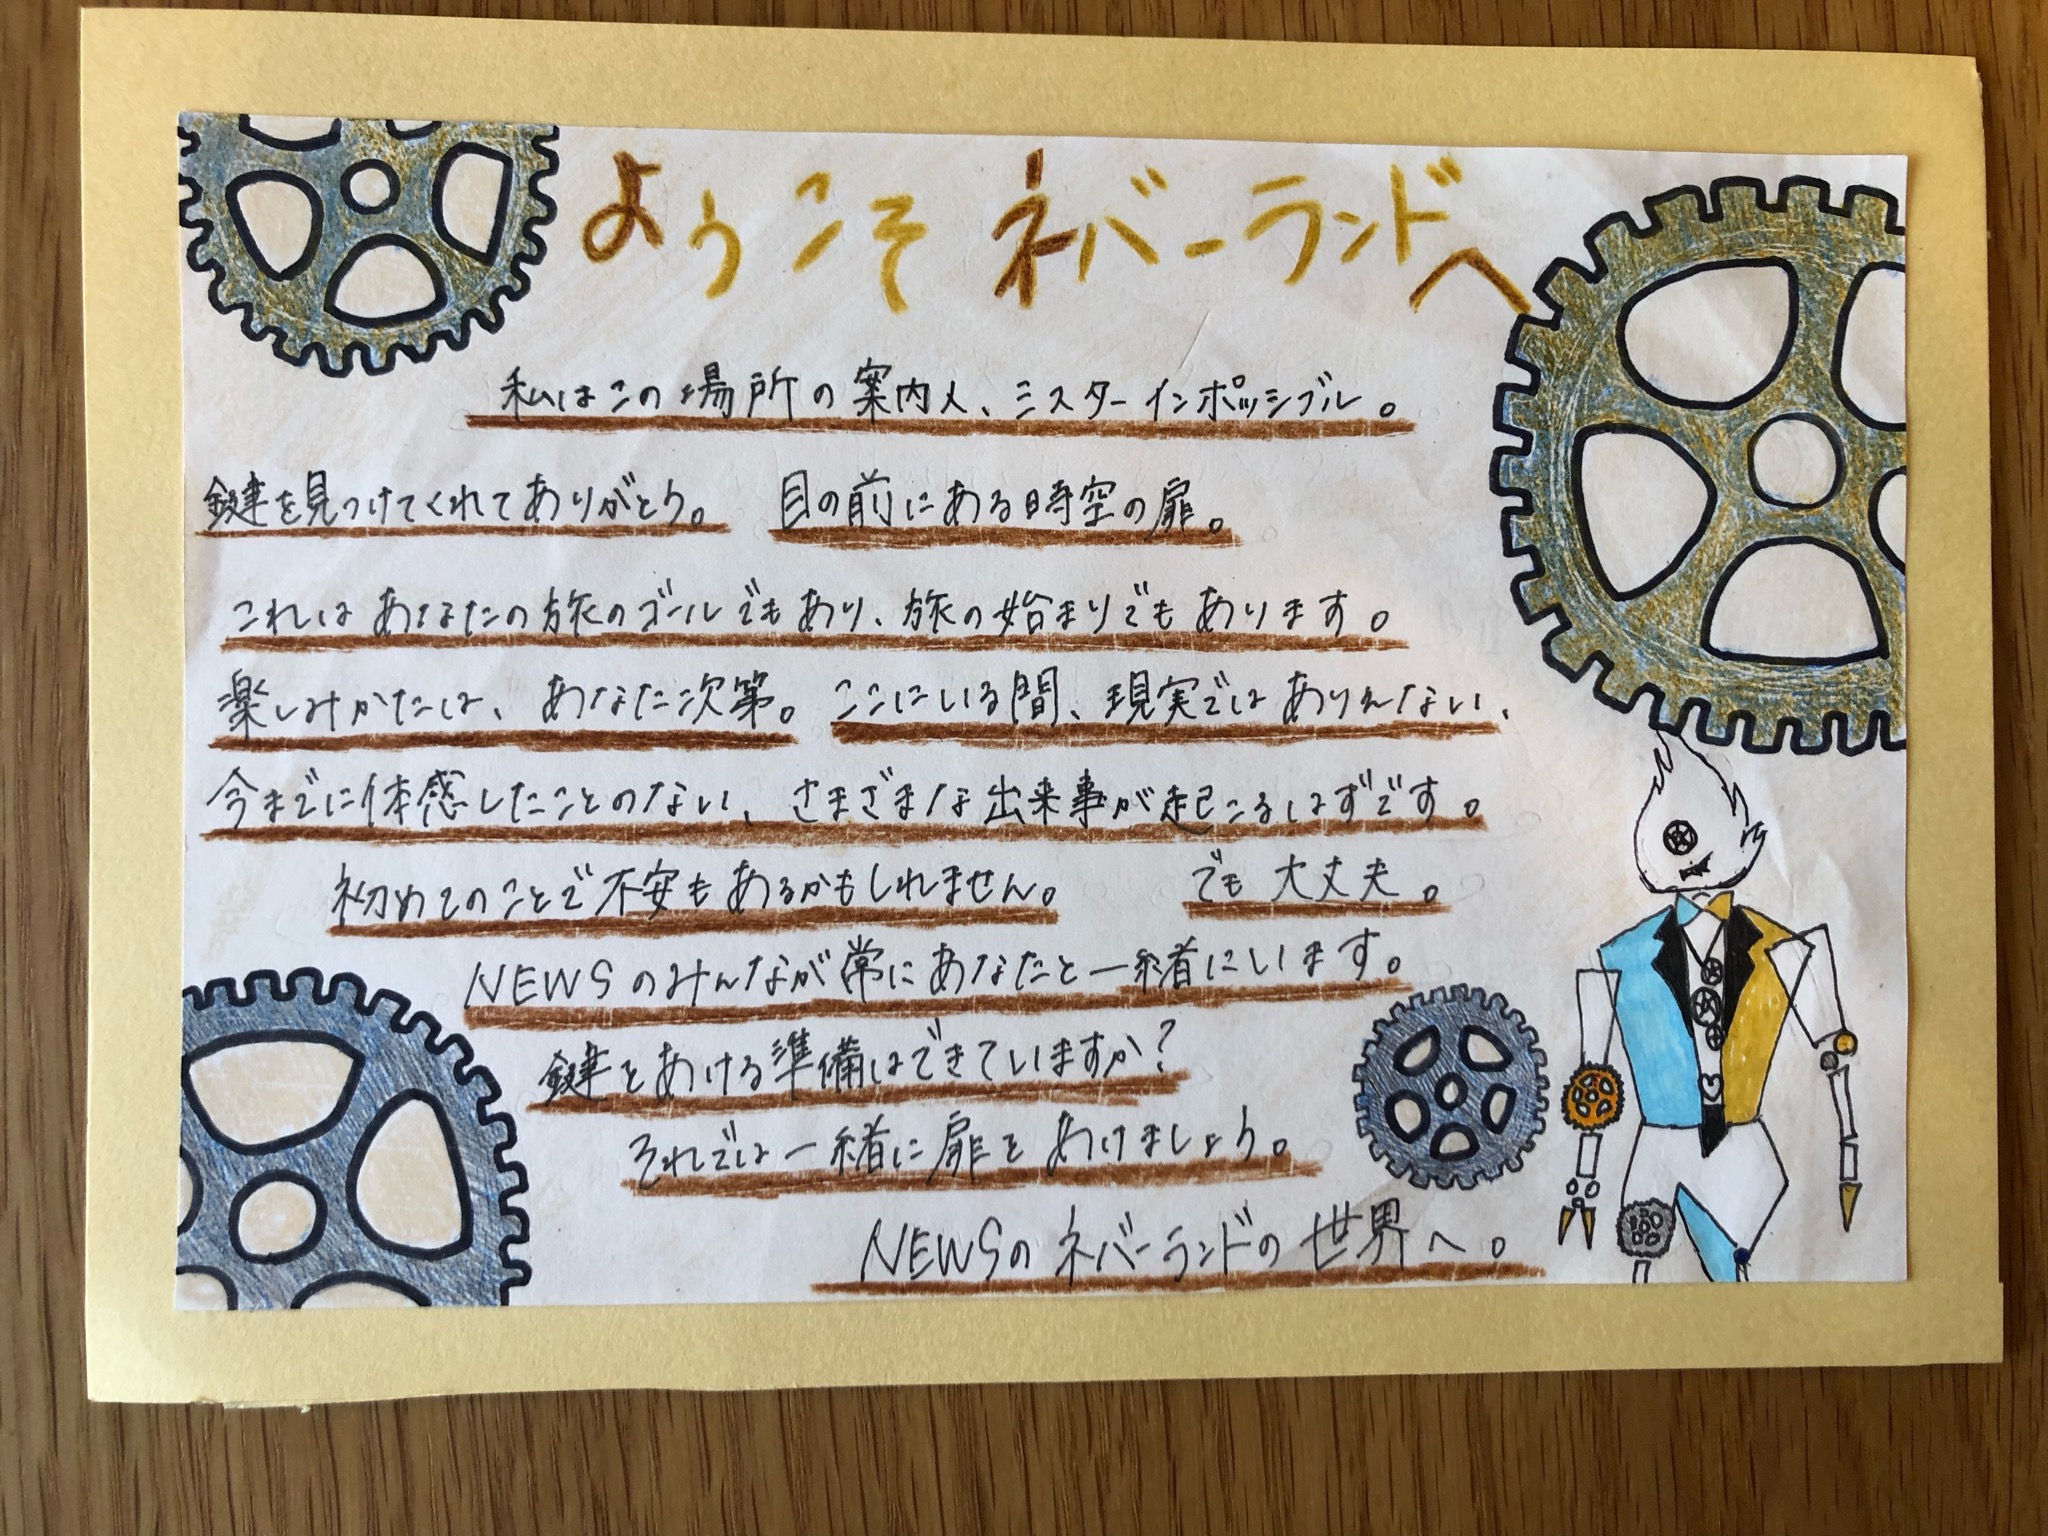 ようこそ ネバーランドへ
私はこの場所の案内人、ミスターインポッシブル。
鍵を見つけてくれてありがとう。 目の前にある時空の扉。
これは あなたの旅のゴールでもあり、旅の始まりでもあります。
楽しみかたは、あなた次第。 ここにいる間、現実ではありえない、
今までに体感したことのない、さまざまな出来事が起こるはずです。
初めてのことで不安もあるかもしれません。 でも 大丈夫。
NEWSのみんなが常にあなたと一緒にいます。
鍵をあける準備はできていますか?
それでは一緒に扉を あけましょう。
NEWSの ネバーランドの 世界へ。